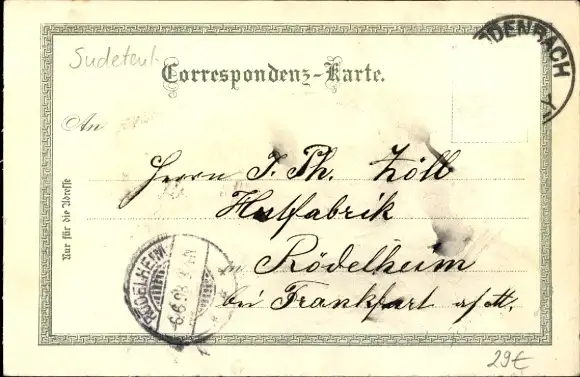 Sudetenl
DENBACH
Correspondenz-Karte.
An
Nur für die Adresse
Herrn J. Ph. Zöll
Hutfabrik
in Rödelheim
bei Frankfurt a/M.
RÖDELHEIM
6.6.98
29€